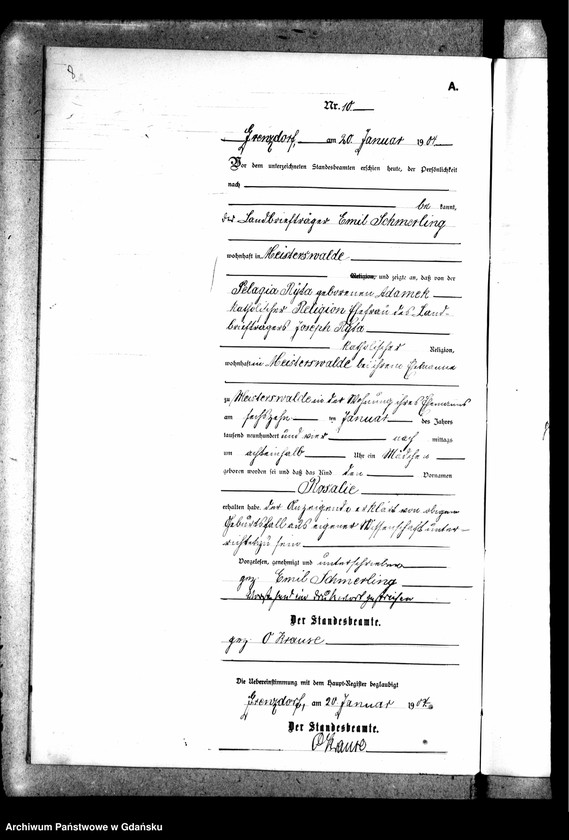 8
A.
Nr. 10
Grenzdorf, am 20. Januar 1904.
Vor dem unterzeichneten Standesbeamten erschien heute, der Persönlichkeit
nach
be kannt,
der Landbriefträger Emil Schmerling
wohnhaft in Meisterswalde
Religion, und zeigte an, daß von der
Pelagia Ryśa geborenen Adamek
katholischer Religion Ehefrau des Land-
briefträgers Joseph Ryśa
katholischer Religion,
wohnhaft in Meisterswalde bei ihrem Ehemanne
zu Meisterswalde in der Wohnung ihres Ehemanns
am sechszehn ten Januar des Jahres
tausend neunhundert und vier nach mittags
um achteinhalb Uhr ein Mädchen
geboren worden sei und daß das Kind den Vornamen
Rosalie
erhalten habe. Der Anzeigende erklärt von obigem
Geburtsfall aus eigener Wissenschaft unter-
richtet zu sein
Vorgelesen, genehmigt und unterschrieben
gez. Emil Schmerling
Vorstehend ein Druckwort gestrichen
Der Standesbeamte.
gez. O Krause
Die Uebereinstimmung mit dem Haupt-Register beglaubigt
Grenzdorf, am 20 Januar 1904
Der Standesbeamte.
O Krause
Archiwum Państwowe w Gdańsku